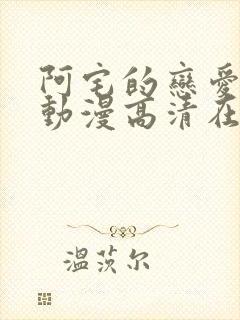 阿宅的戀愛
動漫高清在
溫茨尔